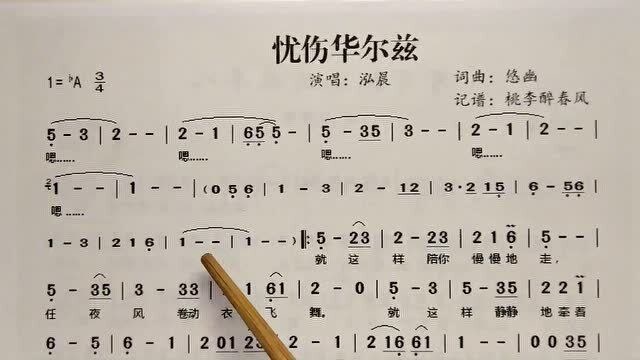 忧伤华尔兹
1=♭A 3/4 演唱：泓晨 词曲：悠幽
记谱：桃李醉春风
5-3|2--|2-1|(65)5-|5-35|2--|2-1|
嗯…… 嗯…… 嗯……
1--|1--|(056|1-3|2-12|3·256|5-56|
嗯……
1-3|216|1--|1--)‖:5-23|2-23|216|5--|
就 这 样 陪你 慢慢地 走，
5-35|3-33|1-61|2--|5-23|2-55|035|
任 夜 风 卷动 衣 飞 舞。 就 这 样 静静 地牵着
6-5|5--|2202|1--|2 166 16|5--|0035|